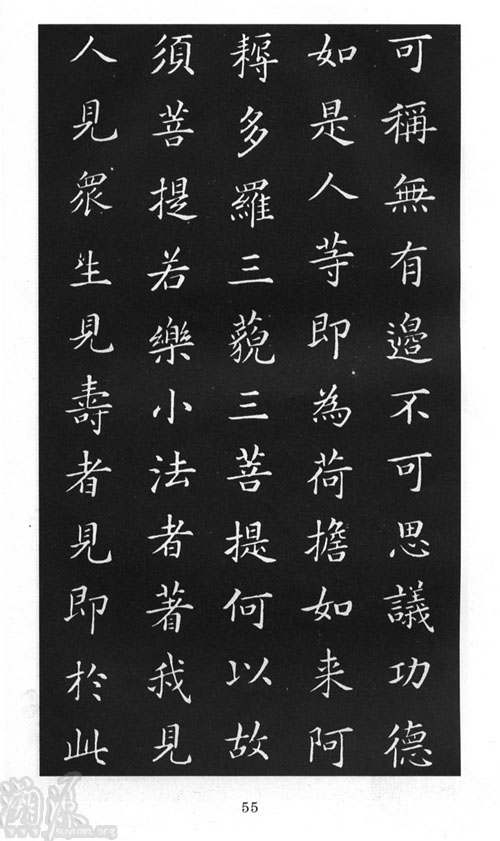 可稱無有邉不可思議功德
如是人荨即為荷擔如来阿
耨多羅三藐三菩提何以故
須菩提若樂小法者著我見
人見衆生見壽者見即於此
55
溯源
www.suyuan.org